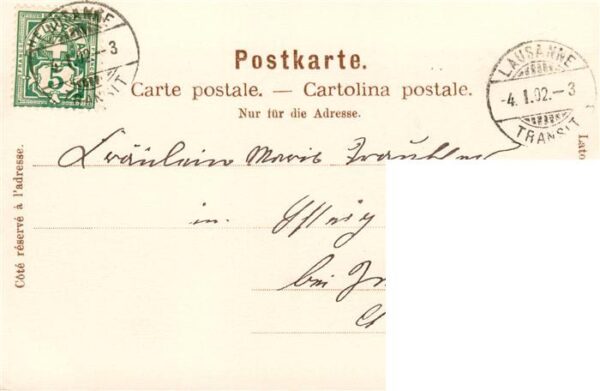 HELVETIA
5
LAUSANNE
3
TRANSIT
Postkarte.
Carte postale. — Cartolina postale.
Nur für die Adresse.
LAUSANNE
-4. I. 02. - 3
TRANSIT
Côté réservé à l'adresse.
Lato
Fräulein Marie
in
bei